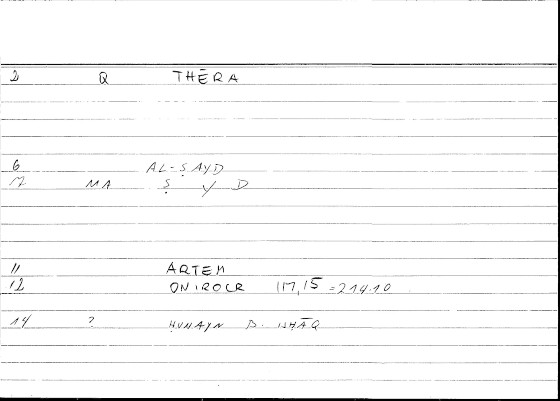 2 Q THĒRA
6 AL-ṢAYD
17 MA Ṣ Y D
11 ARTEM
12 ONIROCR 117,15 = 214.10
14 ? ḤUNAYN B. ISḤĀQ